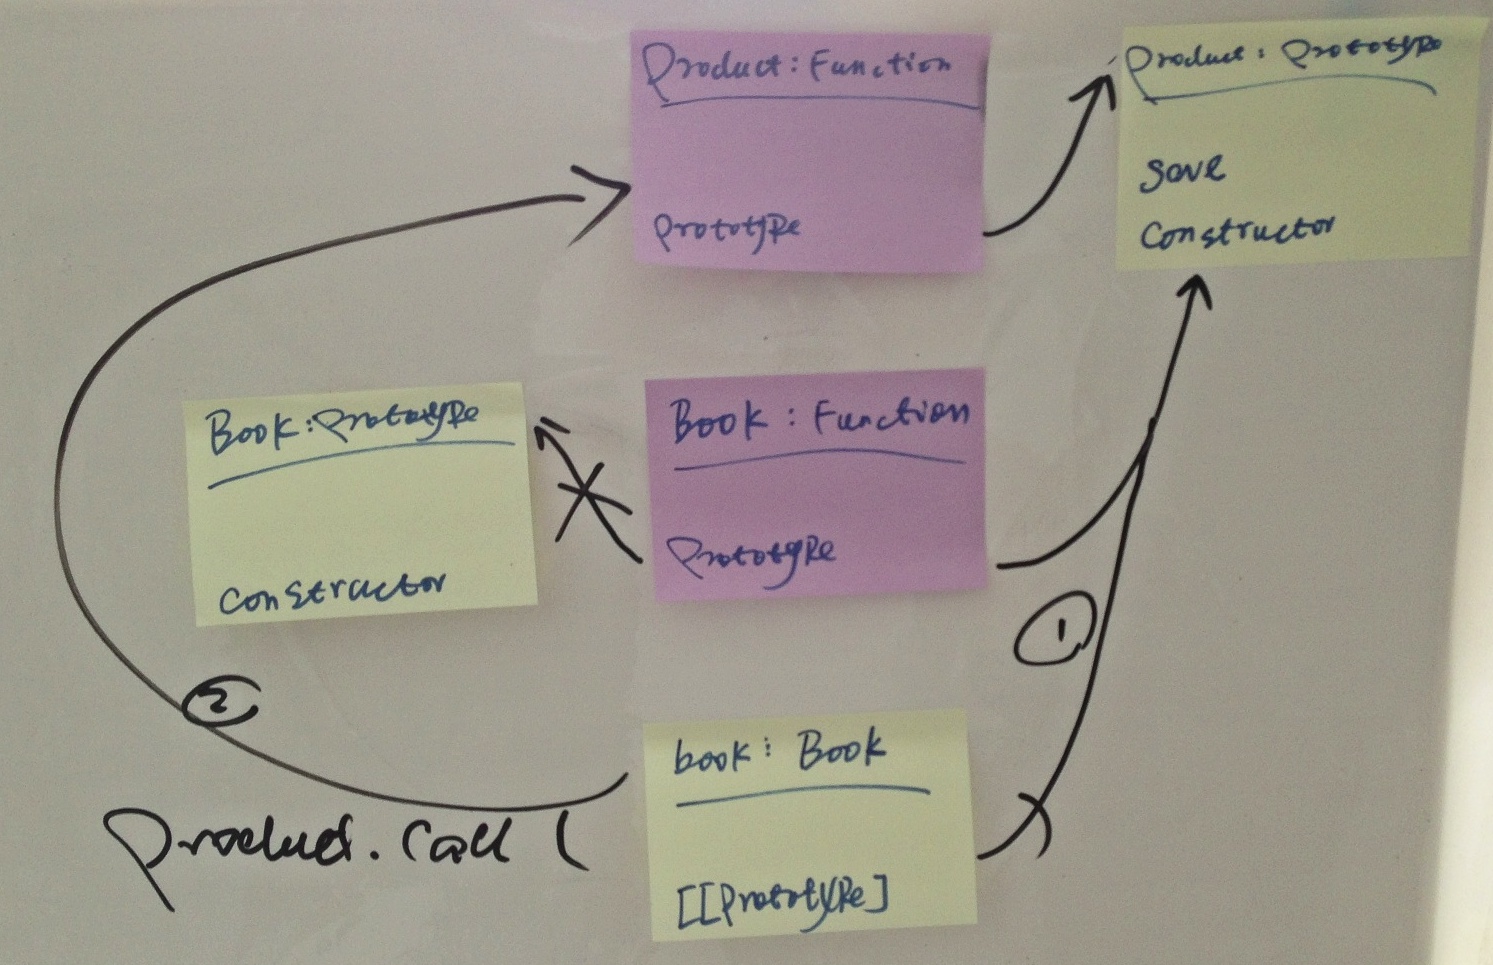 Product : Function
Prototype
Product : Prototype
save
Constructor
Book : Prototype
constructor
Book : Function
Prototype
1
2
Product.call (
book : Book
[[Prototype]